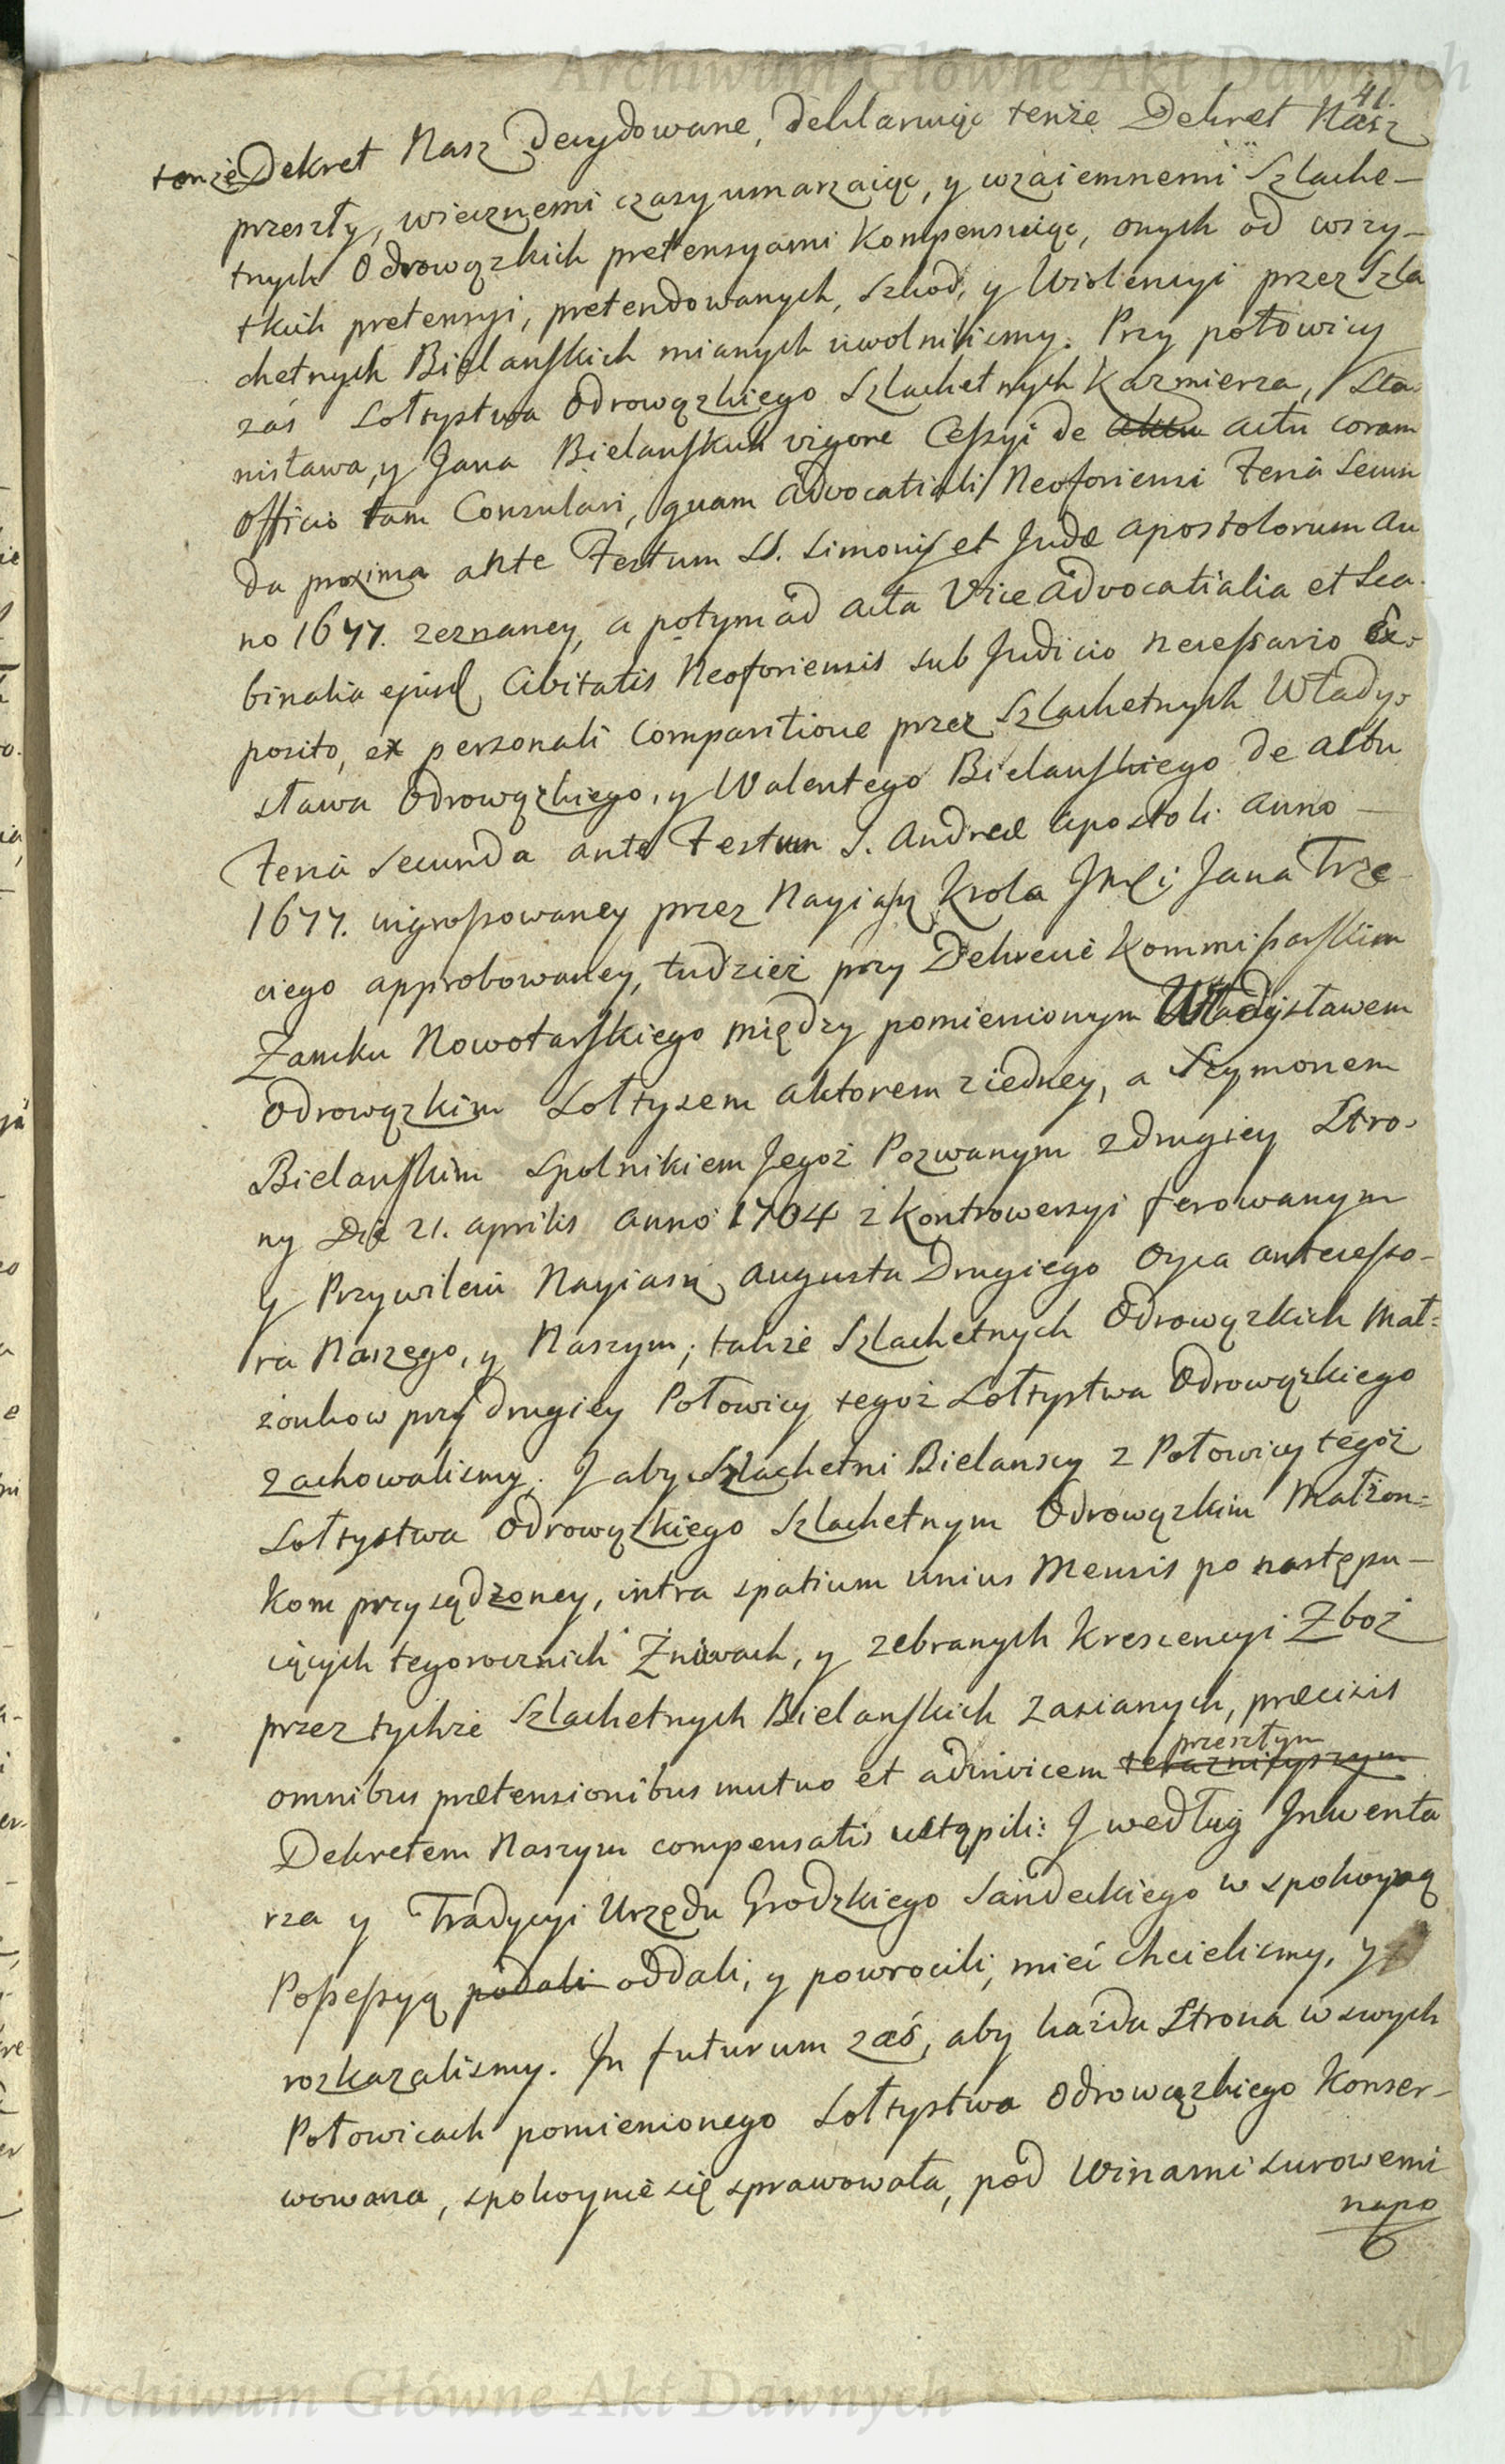 Archiwum Główne Akt Dawnych
41.
tenże Dekret Nasz decydowane, deklaruiąc tenże Dekret Nasz
przeszły, wiecznemi czasy umarzaiąc, y wzaiemnemi Szlache-
tnych Odrowązkich pretensyami kompensuiąc, onych od wszy-
tkich pretensyi, pretendowanych, szkod, y Violencyi przez Szla
chetnych Bielanskich mianych uwolnilismy. Przy połowicy
zaś Sołtystwa Odrowązkiego Szlachetnych Kazmierza, Sta-
nisława, y Jana Bielanskich vigore Cessyi de aktu actu coram
Officio tam Consulari, quam advocatiali Neoforiensi Feria Secun
da proxima ante Festum SS. Simonis et Judæ Apostolorum An
no 1677. zeznaney, a potym ad acta Vice advocatialia et Sca-
binalia ejusd Civitatis Neoforiensis sub Judicio necessario Ex-
posito, ex personali comparitione przez Szlachetnych Włady-
sława Odrowązkiego, y Walentego Bielanskiego de actu
Feria Secunda ante Festum S. Andreæ Apostoli Anno
1677. ingrossowaney przez Nayiasn Krola JMci Jana Trze
ciego approbowaney, tudzież przy Dekrecie Kommissarskim
Zamku Nowotarskiego między pomienionym Władysławem
Odrowązkim Sołtysem aktorem ziedney, a Szymonem
Bielanskim Spolnikiem Jegoż Pozwanym zdrugiey Stro-
ny Die 21. Aprilis Anno 1704 z kontrowersyi ferowanym
y Przywileiu Nayiasn Augusta Drugiego Oyca antecesso-
ra Naszego, y Naszym; takze Szlachetnych Odrowązkich Mał=
żonkow przy drugiey Połowicy tegoż Sołtystwa Odrowązkiego
zachowalismy. J aby Szlachetni Bielanscy z Połowicy tegoż
Sołtystwa Odrowązkiego Szlachetnym Odrowązkim Małżon=
kom przysądzoney, intra spatium unius Mensis po następu-
iących tegorocznich Żniwach, y zebranych krescencyi Zboż
przez tychże Szlachetnych Bielanskich zasianych, præcisis
omnibus prætensionibus mutuo et adinvicem teraznieyszym przeszłym
Dekretem Naszym compensatis ustąpili: J według Jnwenta
rza y Tradycyi Urzędu Grodzkiego Sandeckiego w spokoyną
Possessyą podali oddali, y powrocili, mieć chcielismy, y
rozkazalismy. Jn futurum zaś, aby każda Strona w swych
Połowicach pomienionego Sołtystwa Odrowązkiego konser-
wowana, spokoynie się sprawowała, pod Winami surowemi
napo
Archiwum Główne Akt Dawnych